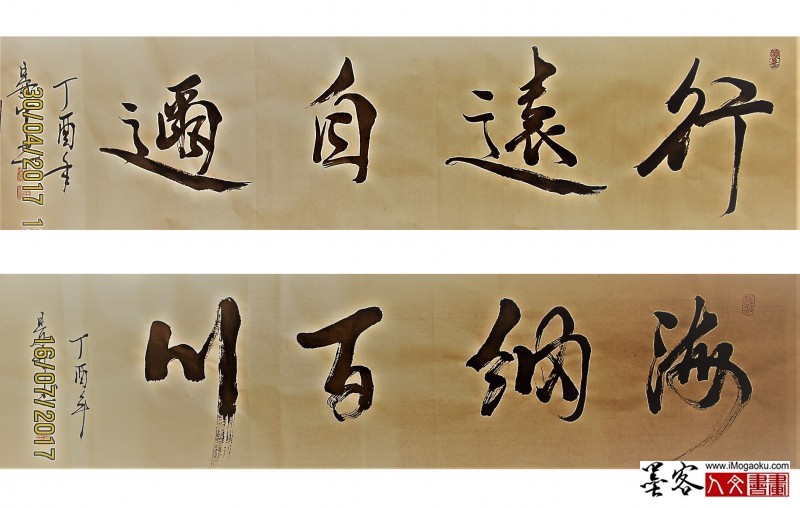 行遠自邇
丁酉年
30/04/2017 1
海納百川
丁酉年
16/07/2017
墨客
www.iMogaoku.com
人文書畫